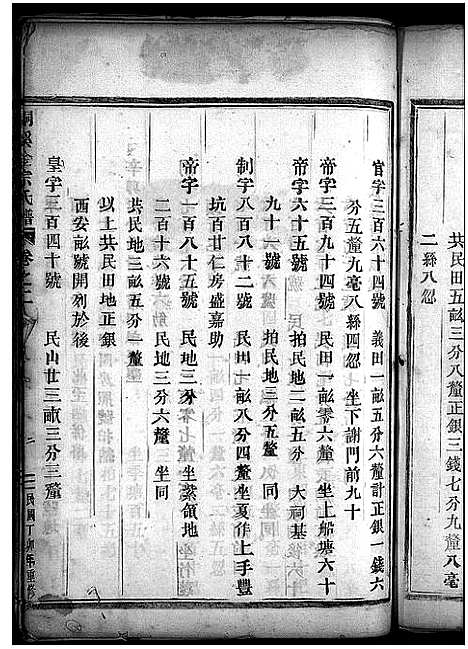 共民田五畝三分八釐正銀三錢七分九釐八毫
二絲八忽
官字三百六十四號 義田一畝五分六釐計正銀一錢六
分五釐九毫八絲四忽 坐下謝門前九十
帝字三百九十四號 民田一畝零六釐 坐上船塘六十
帝字六十五號 拍民地二畝五分 大祠基後六十
九十一號 拍民地三分五釐 同
制字八百八十二號 民田七畝八分四釐坐夏作上手豐
坑百廿仁房盛嘉助
帝字一百八十五號 民地三分零七釐 坐紫領地
二百十六號 民地三分六釐 坐同
共民地三畝五分一釐
以上共民田地正銀
西安畝號開列於後
皇字三百四十號 民山廿三畝三分三釐
氏譜 卷之二
民國丁卯年重修